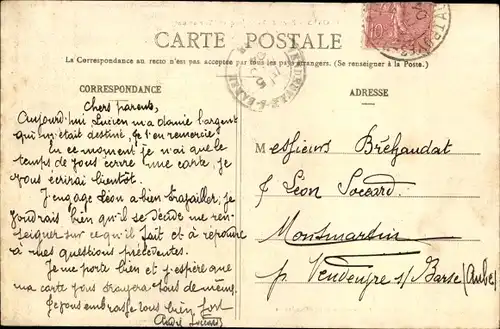 CARTE POSTALE
La Correspondance au recto n'est pas acceptée par tous les pays étrangers. (Se renseigner à la Poste.)
CORRESPONDANCE
Chers parents,
Aujourd'hui Lucien m'a donné l'argent
qui m'était destiné, je l'en remercie
En ce moment je n'ai que le
temps de vous écrire une carte, je
vous écrirai bientôt.
J'engage Léon a bien travailler, je
voudrais bien qu'il se décide me ren-
seigner sur ce qu'il fait et à répondre
à mes questions précédentes.
Je me porte bien et j'espère que
ma carte vous trouvera tous de même.
Je vous embrasse tous bien fort
André
ADRESSE
Messieurs Bréhaudat
Léon Socard
Montmartin
p. Vendeuvre s/ Barse (Aube)
10